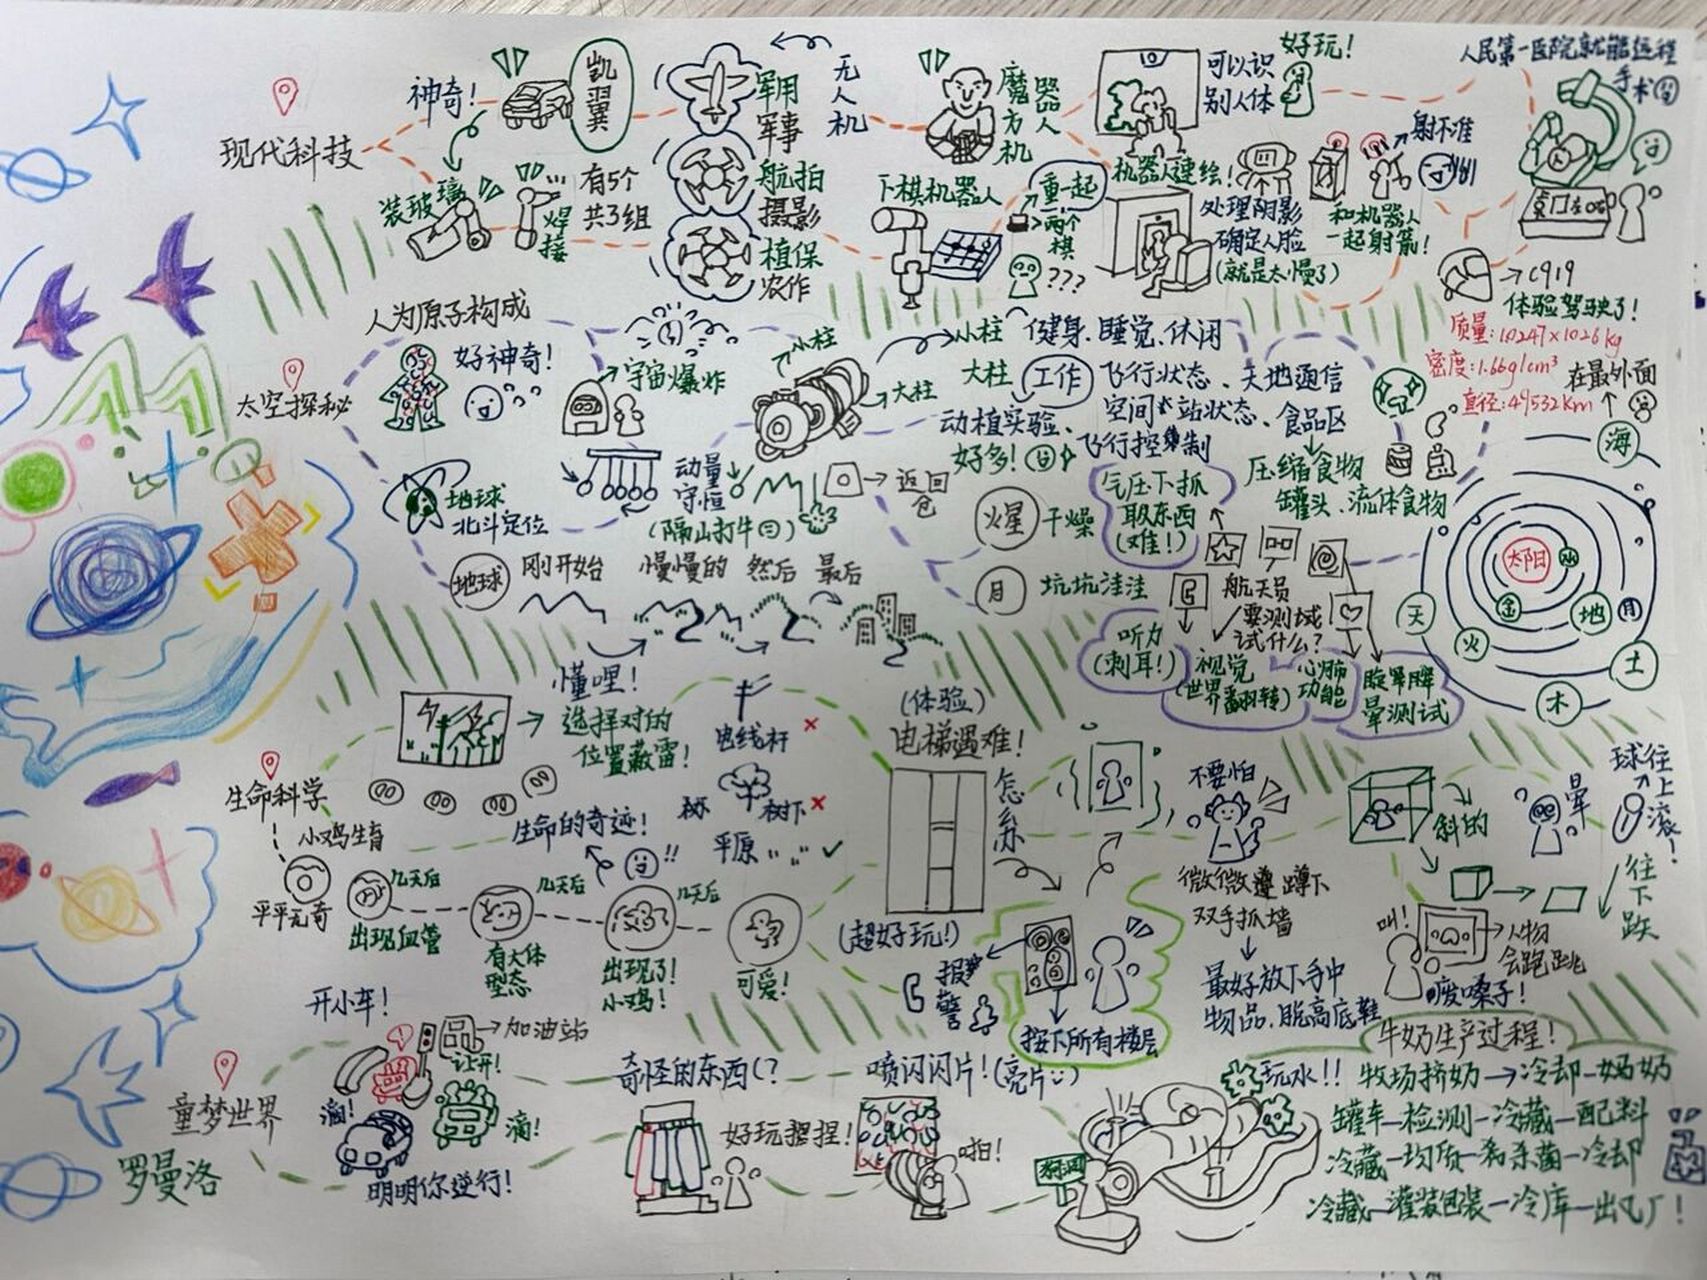 现代科技
神奇！
凯翼
装玻璃
焊接
有5个
共3组
无人机
军用
军事
航拍
摄影
植保
农作
魔方
机器人
下棋机器人
重一起
两个棋
???
可以识
别人体
好玩！
机器人速绘！
处理阴影
确定人脸
(就是太慢了)
射不准
和机器人
一起射箭！
人民第一医院就能远程
手术
C919
体验驾驶了！
太空探秘
人为原子构成
好神奇！
宇宙爆炸
小柱
大柱
小柱 健身、睡觉、休闲
大柱 工作 飞行状态、天地通信
空间站状态、食品区
动植实验、飞行控制
好多！
压缩食物
罐头、流体食物
地球
北斗定位
动量
守恒
(隔山打牛)
返回仓
地球
刚开始 慢慢的 然后 最后
火星 干燥
月 坑坑洼洼
气压下抓
取东西
(难！)
航天员
要测试什么？
听力
(刺耳！)
视觉
(世界翻转)
心肺
功能
眩晕测试
质量：1.0247×1026kg
密度：1.66g/cm³
直径：49532km
在最外面
海
太阳
水
金
地
月
火
木
土
天
生命科学
懂哩！
选择对的
位置蔽雷！
电线杆 ×
树下 ×
平原 ✓
小鸡生育
平平无奇
几天后
出现血管
几天后
有大体
型态
生命的奇迹！
!!
几天后
出现了！
小鸡！
可爱！
(体验)
电梯遇难！
怎么办
(超好玩！)
报警
按下所有楼层
不要怕
微微蹲下
双手抓墙
最好放下手中
物品、脱高底鞋
斜的
晕
球往上滚！
往下跌
叫！
人物
会跑跳
废嗓子！
童梦世界
罗曼洛
开小车！
加油站
让开！
滴！
滴！
明明你逆行！
奇怪的东西(？
好玩捏捏！
喷闪闪片！(亮片)
啪！
玩水！！
牛奶生产过程！
牧场挤奶→冷却—奶
罐车—检测—冷藏—配料
冷藏—均质—杀菌—冷却
冷藏—灌装包装—冷库—出厂！